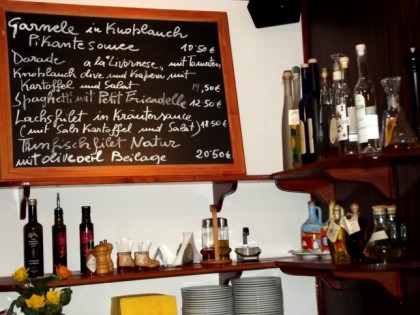 Garnele in Knoblauch
Pikantesouce 10'50€
Dorade a la "Livornese" mit Tomaten,
Knoblauch olive und Kapern mit
Kartoffel und Salat 19,50€
Spaghetti mit Petit Fricadelle 12'50€
Lachsfilet in Kräutersauce
(mit Salz Kartoffel und Salat) 18'50€
Thunfischfilet Natur
mit olivenoel Beilage 20'50€